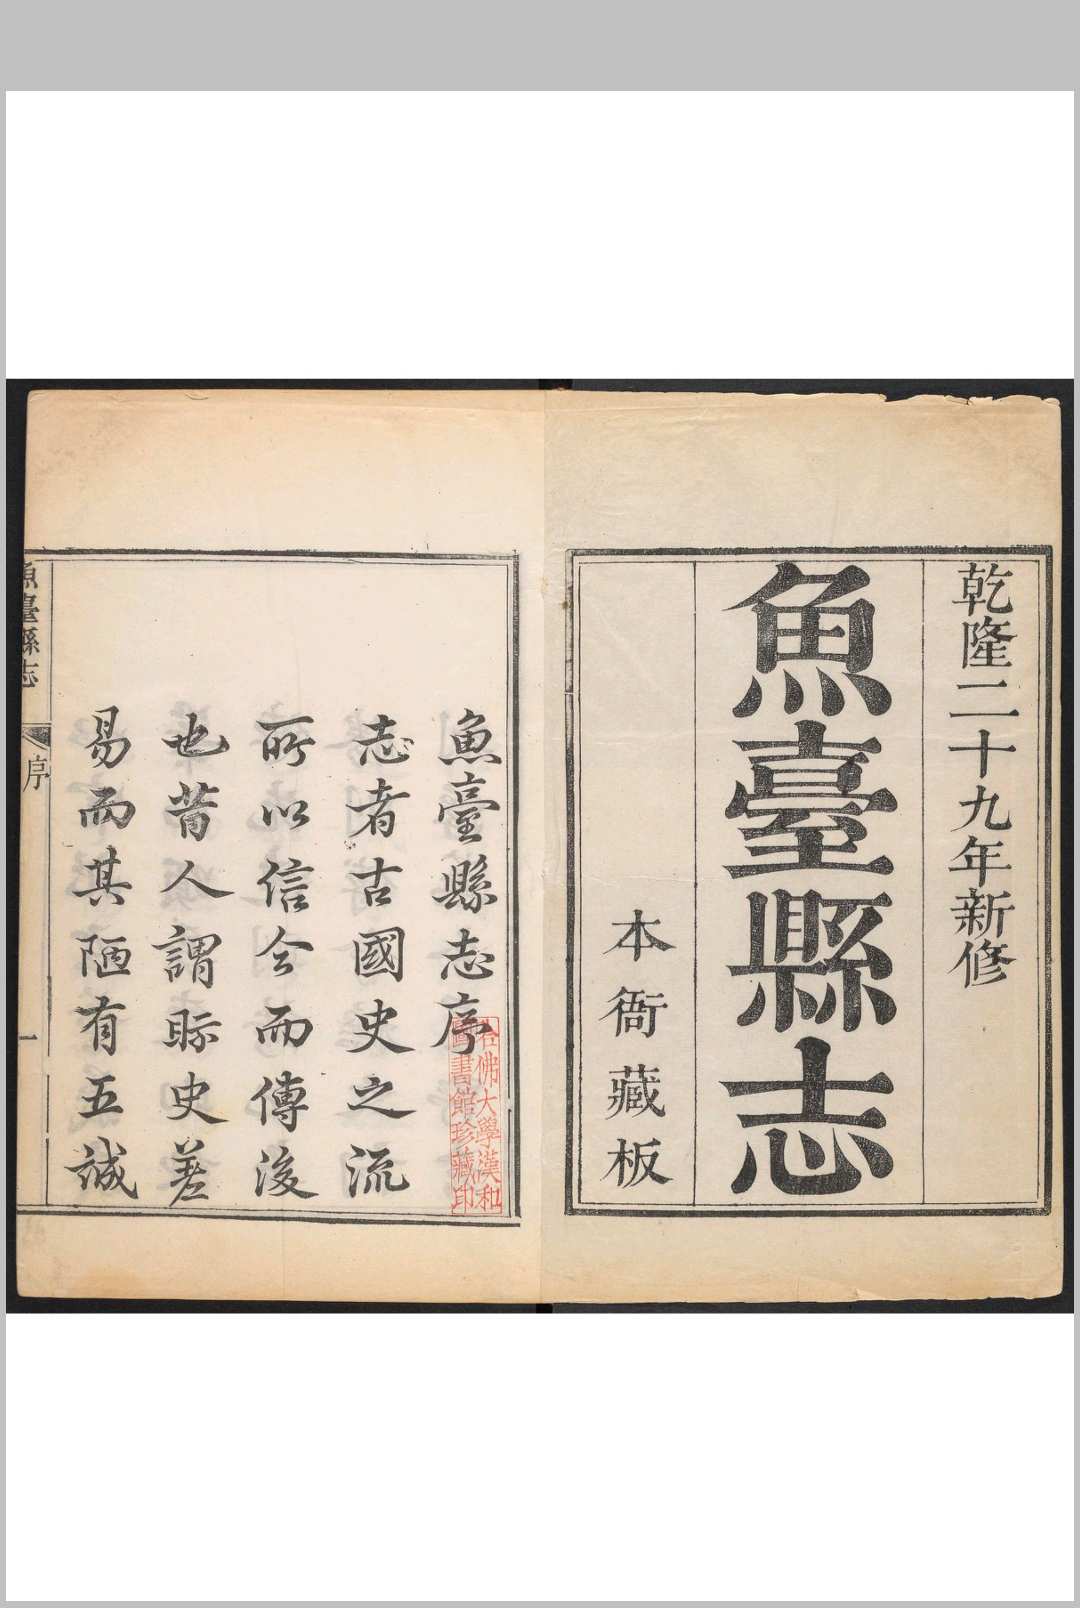 乾隆二十九年新修
魚臺縣志
本衙藏板
魚臺縣志序
志者古國史之流
所以信今而傳後
也昔人謂眎史差
易而其陋有五誠
哈佛大學漢和
圖書館珍藏印
魚臺縣志
序
一